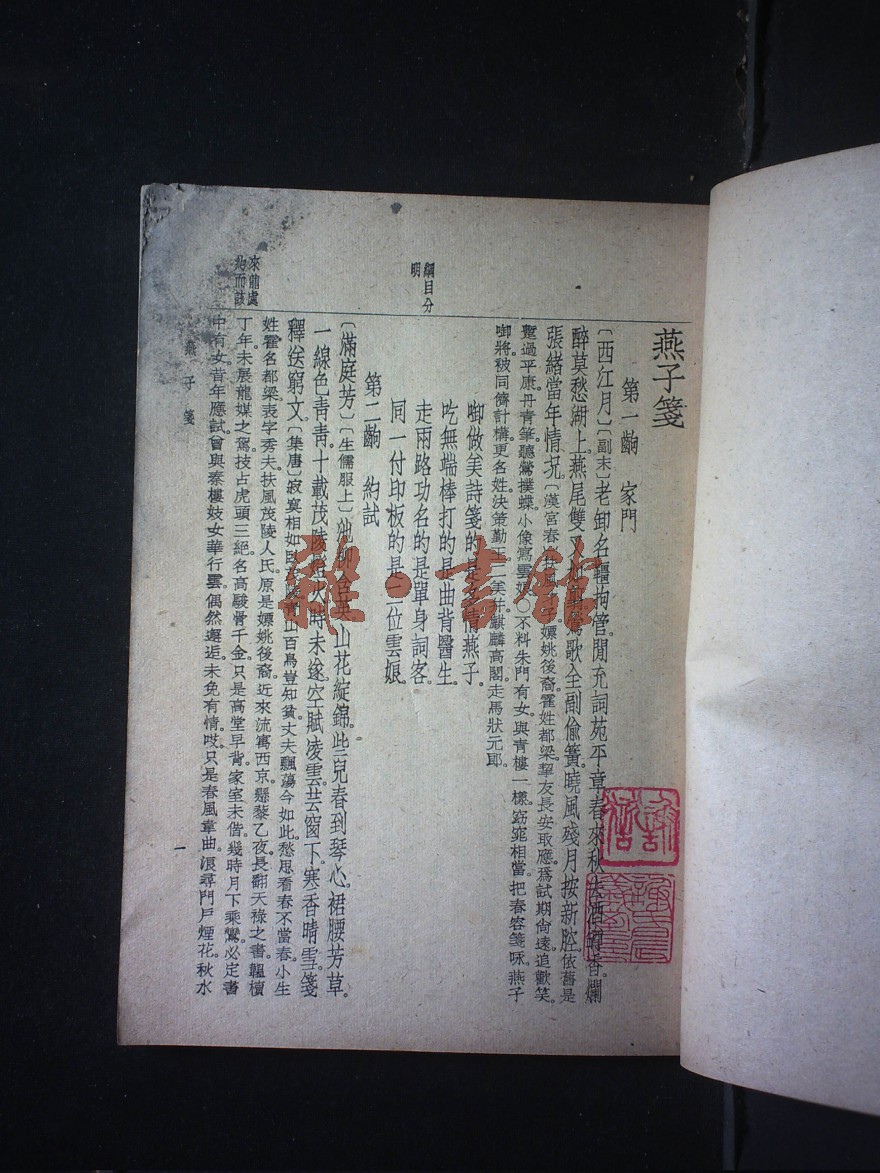 燕子箋
第一齣　家門
〔西江月〕〔副末〕老卸名韁拘管。閒充詞苑平章。春來秋去酒樽香。爛
醉莫愁湖上。燕尾雙叉鶯歌全副偷簧。曉風殘月按新腔。依舊是
張緒當年情况。〔漢宮春〕扶風嫖姚後裔。霍姓都梁。挈友長安取應。爲試期尙遠追歡笑。
蹔過平康。丹青筆。聽鶯撲蝶。小像寫雲娘。〇不料朱門有女。與青樓一樣。窈窕相當。把春容箋咏。燕子
啣將。被同儕計構。更名姓決策勤王。二美幷。麒麟高閣。走馬狀元郎。
綱目分
明
啣做美詩箋的是多情燕子。
吃無端棒打的是曲背醫生。
走兩路功名的是單身詞客。
同一付印板的是二位雲娘。
第二齣　約試
〔滿庭芳〕〔生儒服上〕池柳含英。山花綻錦。些兒春到琴心。裙腰芳草。
一線色靑靑。十載茂陵燈火。時未遂。空賦凌雲。芸窗下。寒香晴雪。箋
釋送窮文。〔集唐〕寂寞相如臥茂陵。青山百鳥豈知貧。丈夫飄蕩今如此。愁思看春不當春。小生
姓霍名都梁。表字秀夫。扶風茂陵人氏。原是嫖姚後裔。近來流寓西京。懸藜乙夜。長翻天祿之書。韞櫝
丁年。未展龍媒之駕。技占虎頭三絕。名高駿骨千金。只是高堂早背。家室未偕。幾時月下乘鸞。必定書
中有女。昔年應試。曾與秦樓妓女華行雲。偶然邂逅。未免有情。哎。只是春風韋曲。浪尋門戶煙花。秋水
來龍處
約而該
燕子箋
一
雜·書館